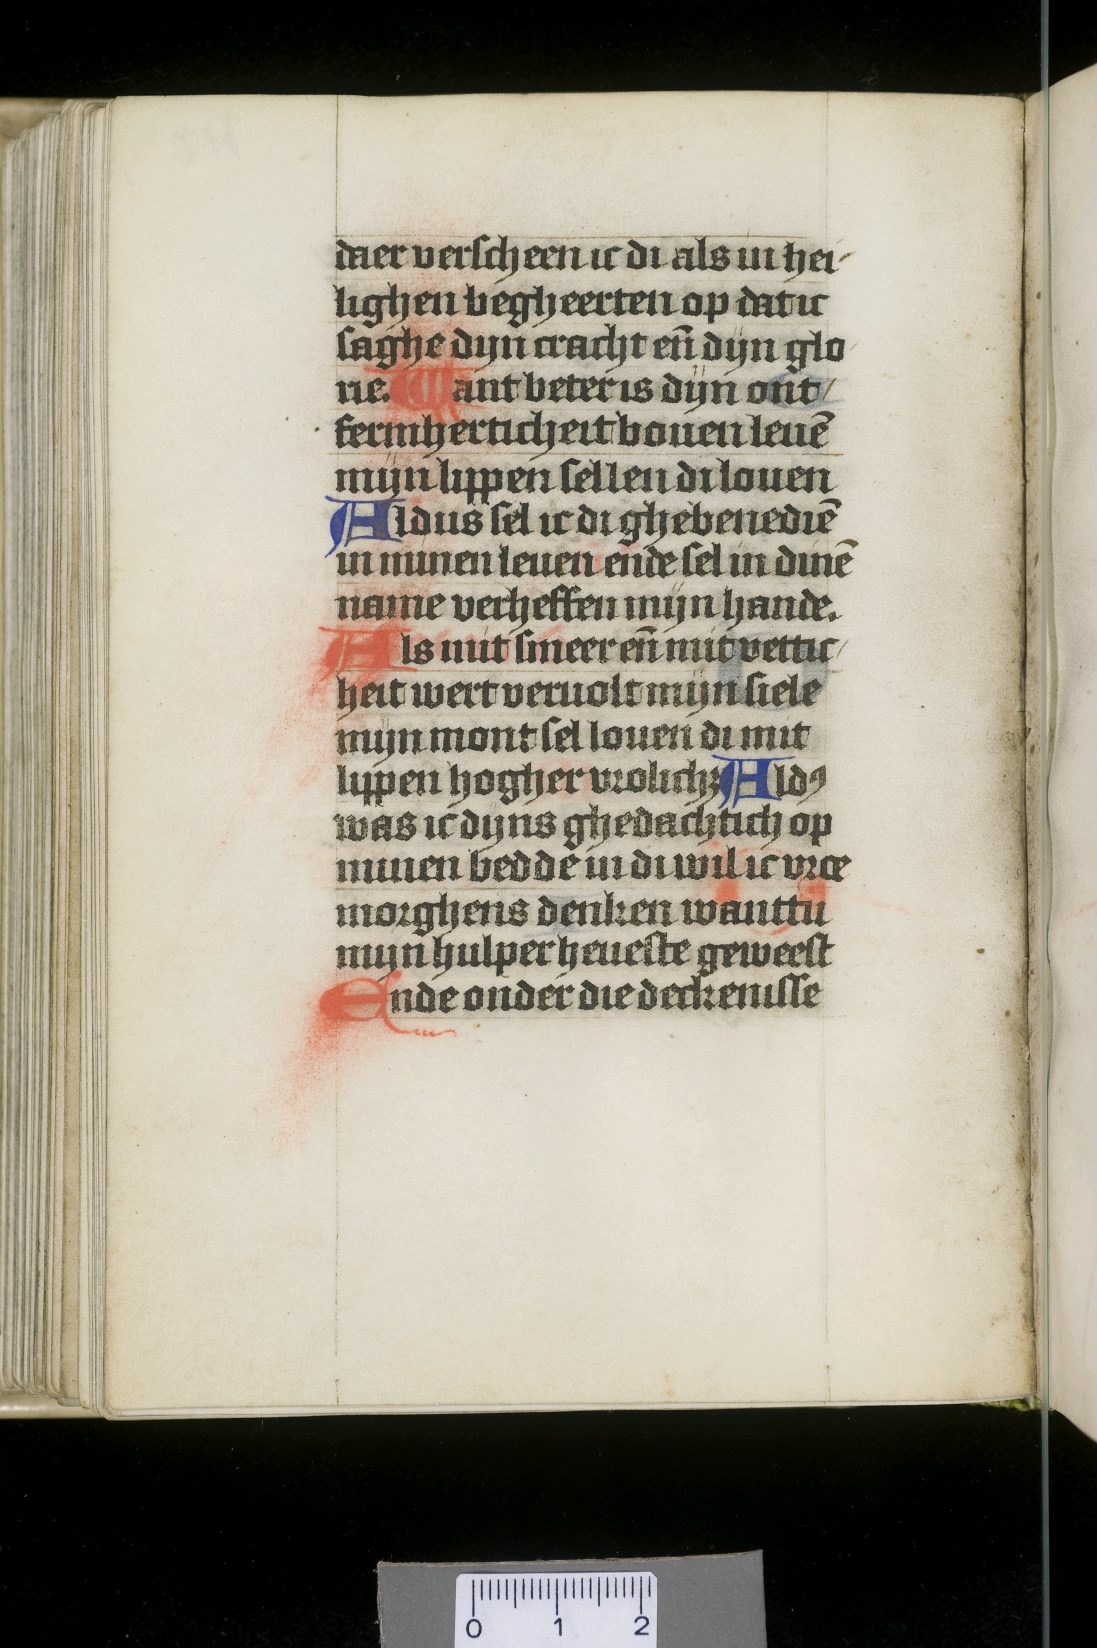 daer verscheen ic di als in hei-
lighen begheerten op dat ic
saghe dyn cracht en̄ dyn glo
rie. Want beter is dijn ont/
fermherticheit bouen leuē
mijn lippen sellen di louen
Aldus sel ic di ghebenediē
in minen leuen ende sel in dinē
name verheffen mijn hande.
Als mit smeer en̄ mit vettic/
heit wert veruolt mijn siele
mijn mont sel louen di mit
lippen hogher vrolichz Aldꝰ
was ic dijns ghedachtich op
minen bedde in di wil ic vroe
morghens denken wanttu
mijn hulper heueste geweest
Ende onder die deckenisse
0 1 2